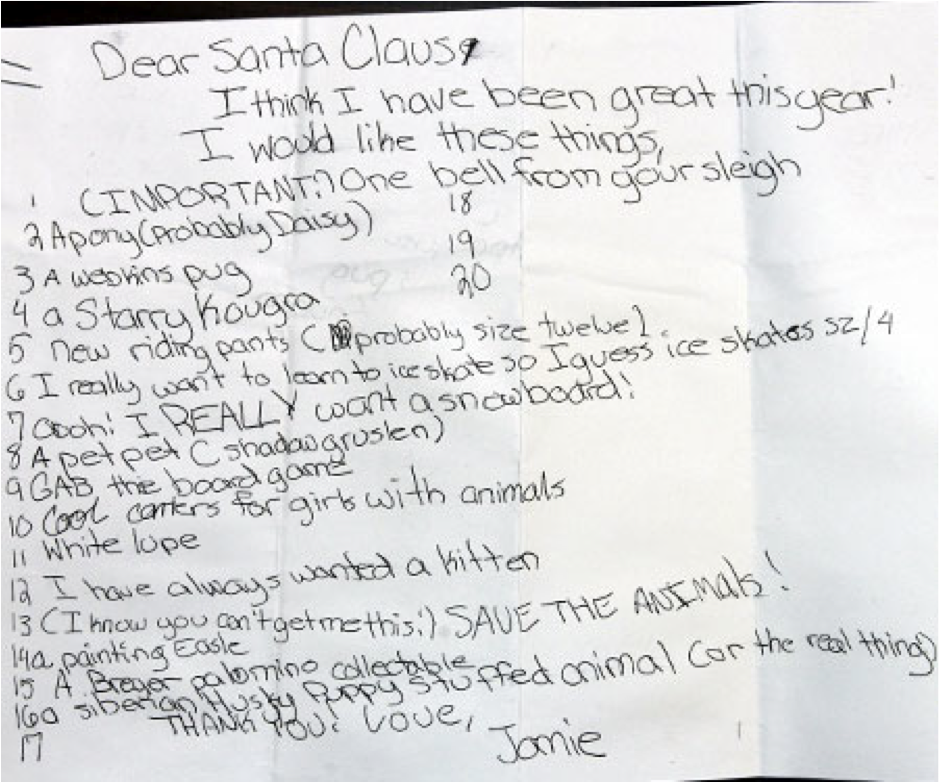 Dear Santa Claus,
I think I have been great this year!
I would like these things,
1 (IMPORTANT!) One bell from your sleigh
2 A pony (Probably Daisy) 18
19
3 A webkins pug 20
4 a Starry Kougra
5 new riding pants (probably size twelve).
6 I really want to learn to ice skate so I guess ice skates sz/4
7 Oooh! I REALLY want a snowboard!
8 A petpet (shadow gruslen)
9 GAB the board game
10 Cool for girls with animals
11 White lupe
12 I have always wanted a kitten
13 (I know you can't get me this!) SAVE THE ANIMAlS!
14 a painting Easle
15 A Breyer palomino collectable
16 a siberian Husky Puppy stuffed animal (or the real thing)
17 THANK YOU! Love,
Jamie